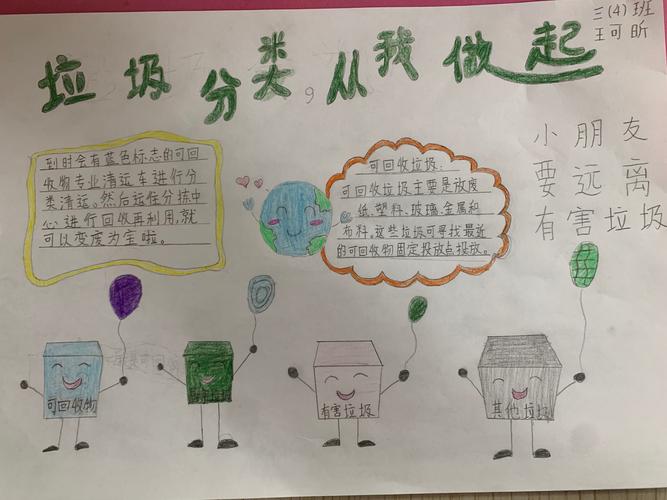 三(4)班
王可昕
垃圾分类,从我做起
到时会有蓝色标志的可回
收物专业清运车进行分
类清运。然后运往分拣中
心进行回收再利用,就
可以变废为宝啦。
可回收垃圾:
可回收垃圾主要是放废
纸、塑料、玻璃、金属和
布料,这些垃圾可寻找最近
的可回收物固定投放点投放。
小朋友
要远离
有害垃圾
可回收物
有害垃圾
其他垃圾